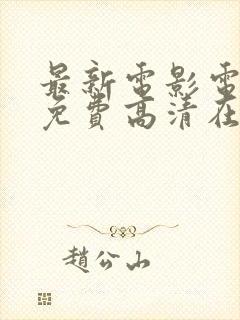 最新电影电
免費高清在
趙公山